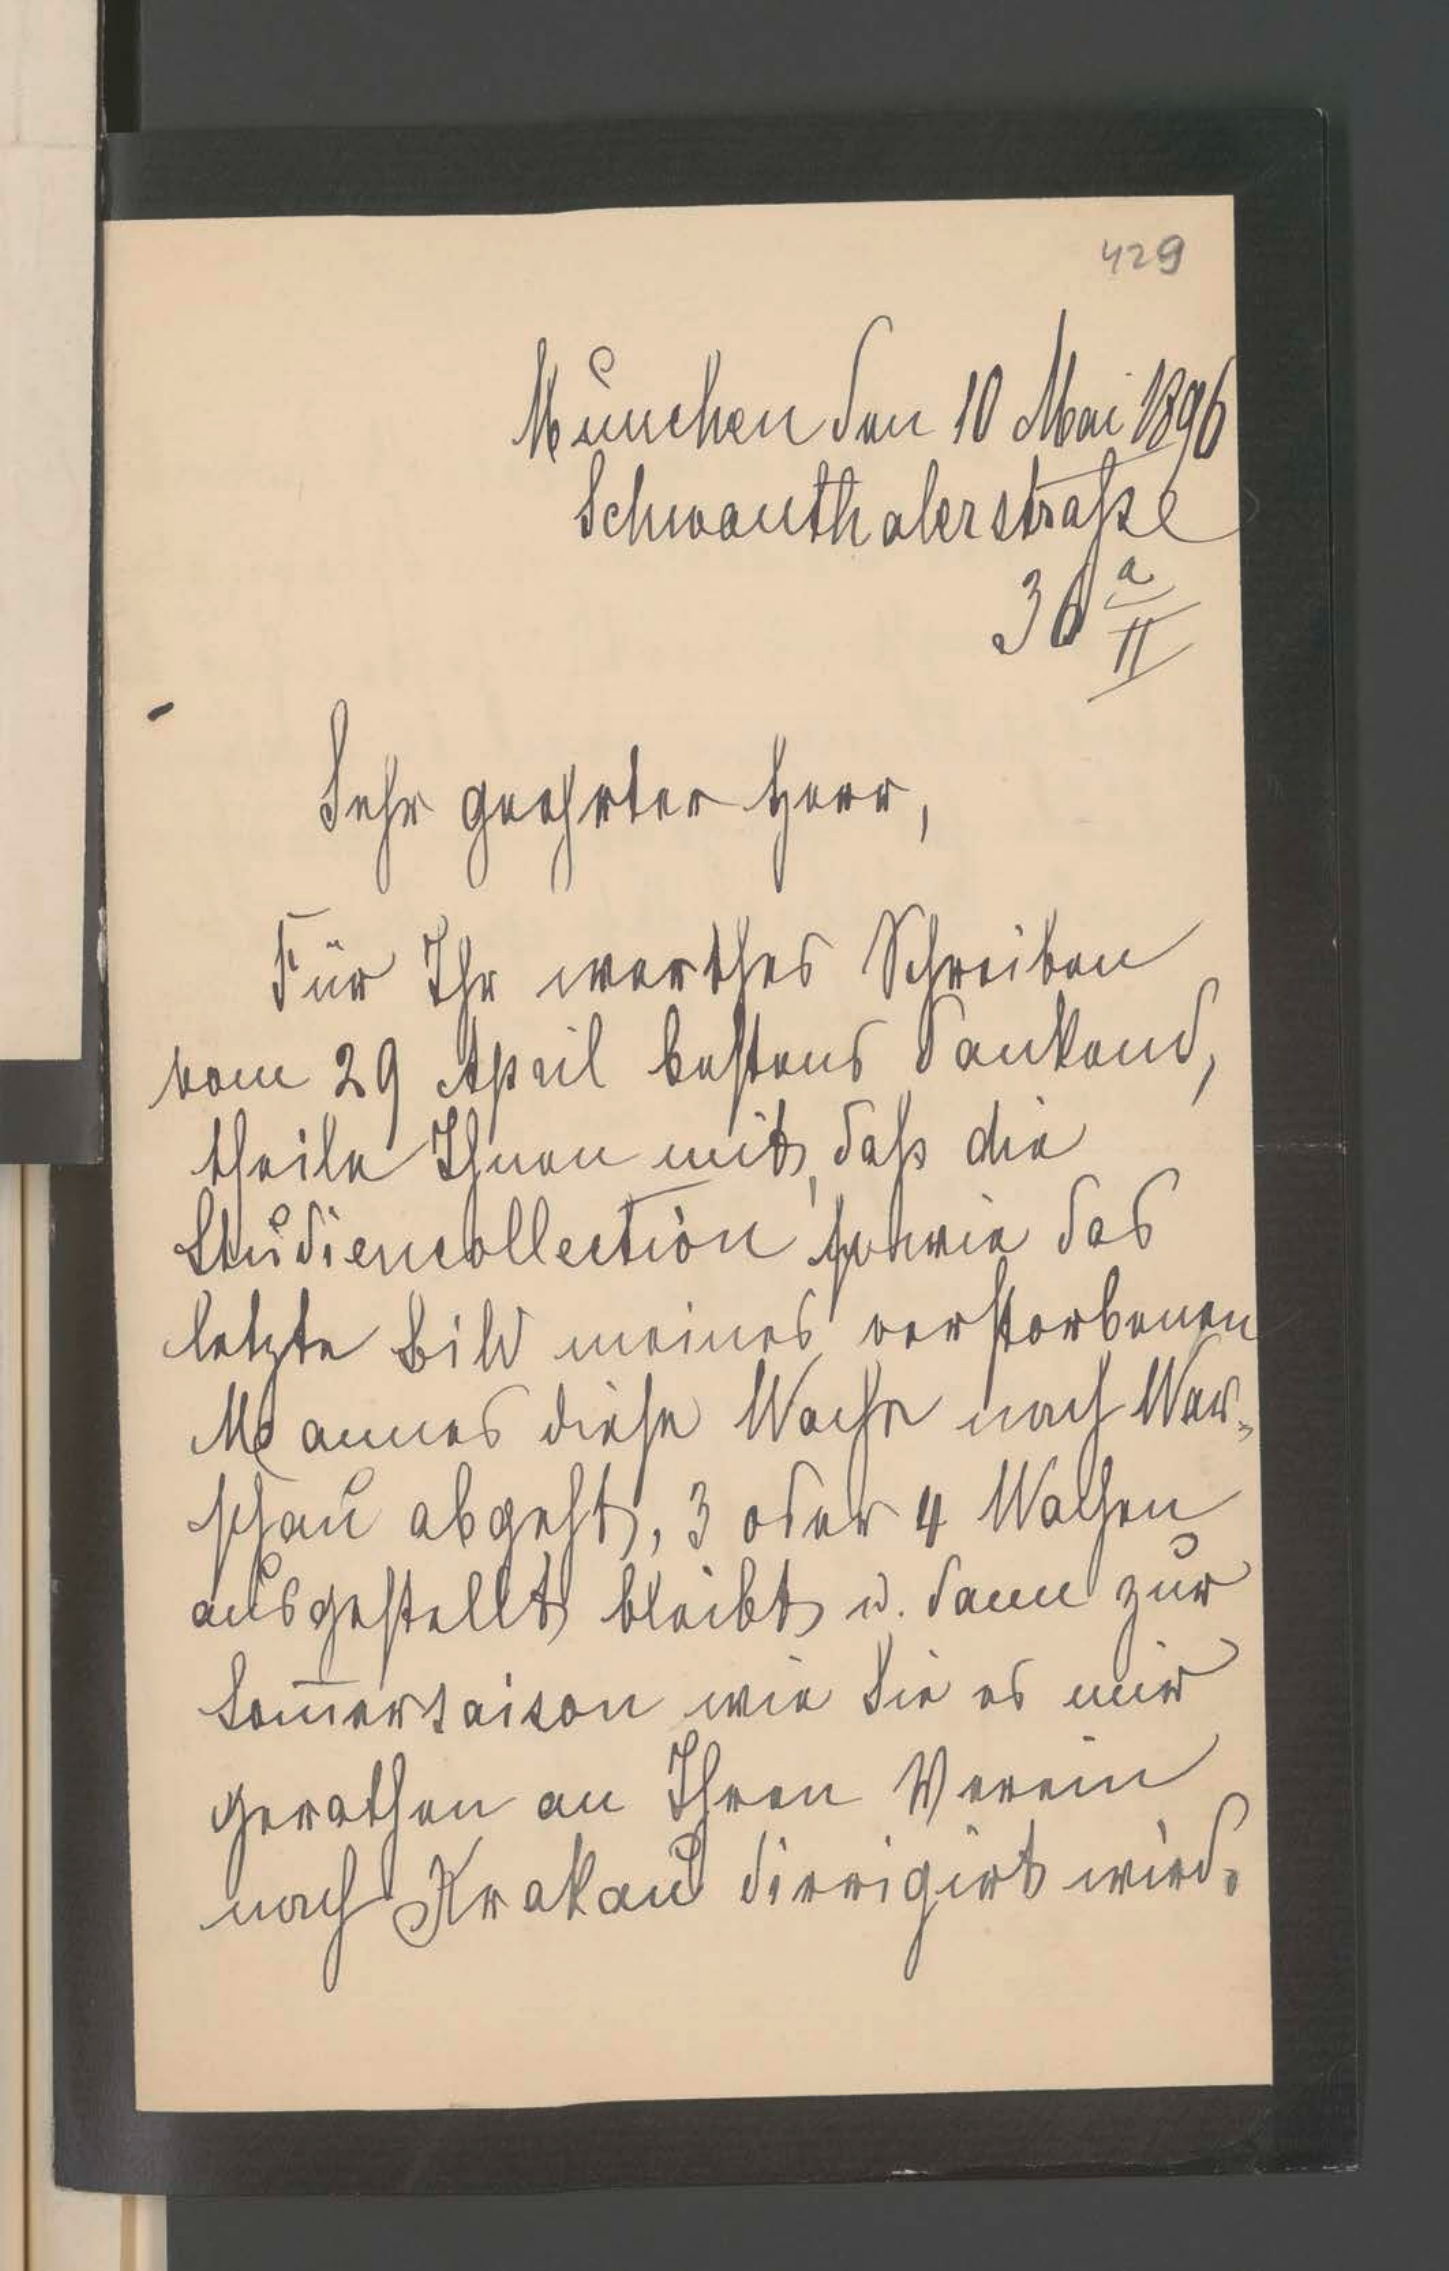 429
München den 10 Mai 1896
Schwanthalerstraße
36 a/II
Sehr geehrter Herr,
Für Ihr werthes Schreiben
vom 29 April bestens dankend,
theile Ihnen mit, daß die
Studiencollection sowie das
letzte Bild meines verstorbenen
Mannes diese Woche nach War-
schau abgeht, 3 oder 4 Wochen
ausgestellt bleibt u. dann zur
Som̅ersaison wie Sie es mir
gerathen an Ihren Verein
nach Krakau dirrigirt wird.